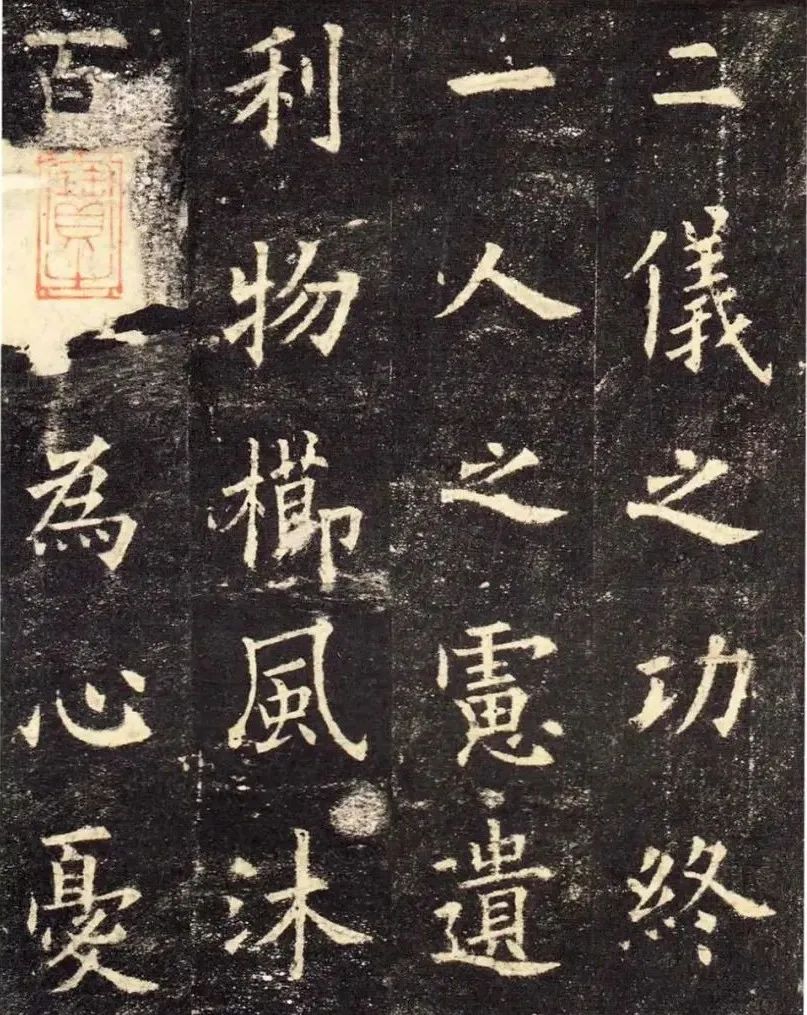 二儀之功終
一人之慮遺
利物櫛風沐
百為心憂